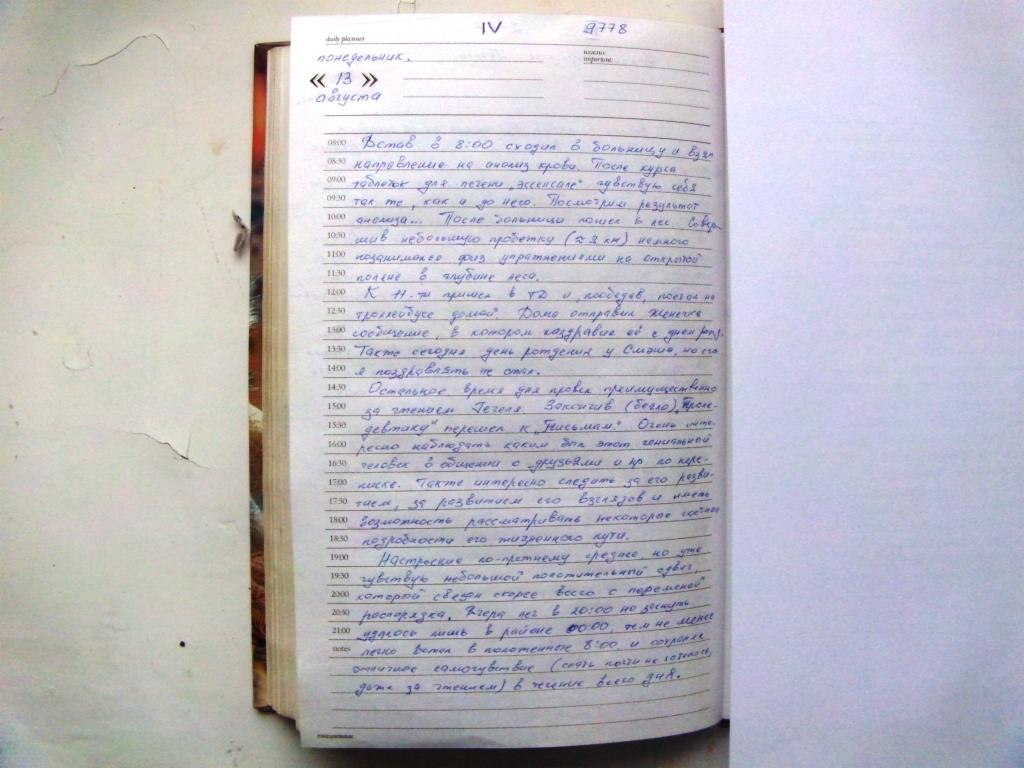 IV 9778
daily planner
важно:
important:
понедельник.
« 13 »
августа
08:00 Встав в 8:00 сходил в больницу и взял
08:30 направление на анализ крови. После курса
09:00 таблеток для печени „эссенсале" чувствую себя
09:30 так же, как и до него. Посмотрим результат
10:00 анализа... После больницы пошел в лес. Совер-
10:30 шив небольшую пробежку (≈3 км) немного
11:00 позанимался физ упражнениями на открытой
11:30 поляне в глубине леса.
12:00 К 11-ти пришел в ТД и, пообедав, поехал на
12:30 троллейбусе домой. Дома отправил Женечке
13:00 сообщение, в котором поздравил её с днем рожд.
13:30 Также сегодня день рождения у Смэша, но его
14:00 я поздравлять не стал.
14:30 Остальное время дня провел преимущественно
15:00 за чтением Гегеля. Закончив (бегло) „Пропе-
15:30 девтику" перешел к „Письмам". Очень инте-
16:00 ресно наблюдать каким был этот гениальный
16:30 человек в общении с друзьями и пр по пере-
17:00 писке. Также интересно следить за его разви-
17:30 тием, за развитием его взглядов и иметь
18:00 возможность рассматривать некоторые
18:30 подробности его жизненного пути.
19:00 Настроение по-прежнему среднее, но уже
19:30 чувствую небольшой положительный сдвиг,
20:00 который связан скорее всего с переменой
20:30 распорядка. Вчера лег в 20:00 но заснуть
21:00 удалось лишь в районе 00:00, тем не менее
notes легко встал в положенные 8:00 и сохранял
отличное самочувствие (спать почти не хотелось,
даже за чтением) в течение всего дня.